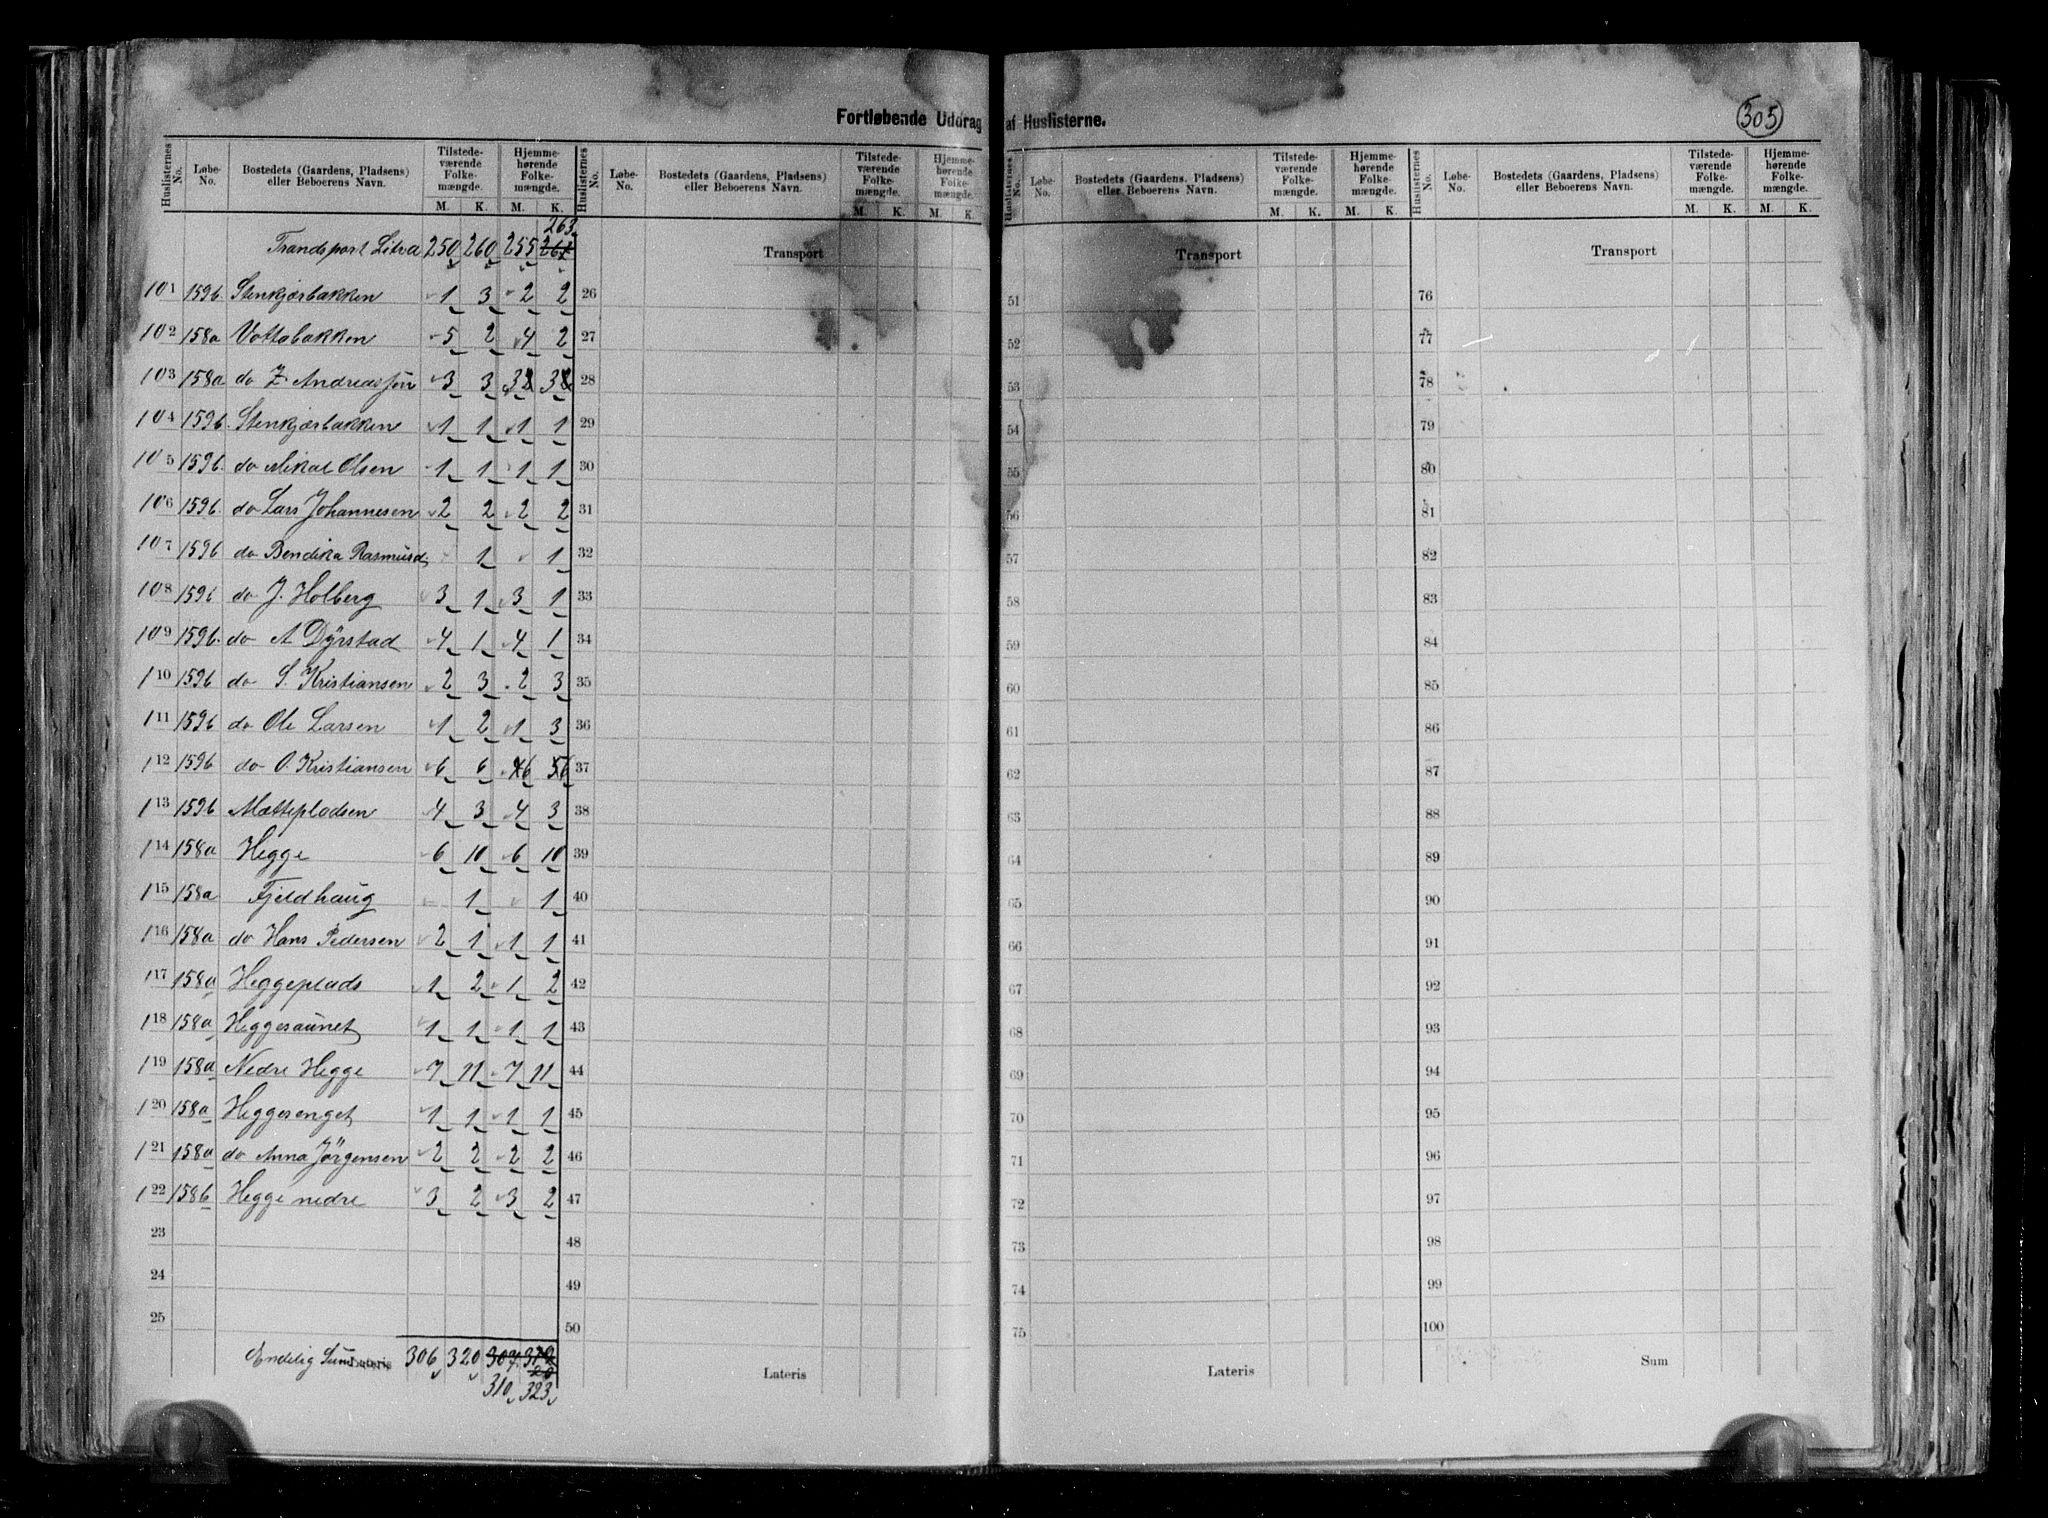 Fortløbende Uddrag af Huslisterne.
305
Huslisternes No. Løbe-No. Bostedets (Gaardens, Pladsens) eller Beboerens Navn. Tilstedeværende Folkemængde. M. K. Hjemmehørende Folkemængde. M. K.
Huslisternes No. Løbe-No. Bostedets (Gaardens, Pladsens) eller Beboerens Navn. Tilstedeværende Folkemængde. M. K. Hjemmehørende Folkemængde. M. K.
Huslisternes No. Løbe-No. Bostedets (Gaardens, Pladsens) eller Beboerens Navn. Tilstedeværende Folkemængde. M. K. Hjemmehørende Folkemængde. M. K.
Huslisternes No. Løbe-No. Bostedets (Gaardens, Pladsens) eller Beboerens Navn. Tilstedeværende Folkemængde. M. K. Hjemmehørende Folkemængde. M. K.
263
Trandsport Litra 250 260 255 Transport Transport Transport
101 159b. Stenkjærbakken 1 3 2 2 26 51 76
102 158a Vottabakken 5 2 4 2 27 52 77
103 158a do Z. Andreassen 3 3 3 3 28 53 78
104 159b. Stenkjærbakken 1 1 1 1 29 54 79
105 159b. do Mikal Olsen 1 1 1 1 30 55 80
106 159b. do Lars Johannesen 2 2 2 2 31 56 81
107 159b do Bendika Rasmusd. 1 1 32 57 82
108 159b do J. Holberg 3 1 3 1 33 58 83
109 159b. do A Dÿrstad 4 1 4 1 34 59 84
110 159b do S. Kristiansen 2 3 2 3 35 60 85
111 159b do Ole Larsen 1 2 1 3 36 61 86
112 159b do O. Kristiansen 6 6 6 6 37 62 87
113 159b Mætteplodsen 4 3 4 3 38 63 88
114 158a Hegge 6 10 6 10 39 64 89
115 158a Fjeldhaug 1 1 40 65 90
116 158a do Hans Pedersen 2 1 1 1 41 66 91
117 158a Heggeplads 1 2 1 2 42 67 92
118 158a Heggesaunet 1 1 1 1 43 68 93
119 158a Nedre Hegge 7 11 7 11 44 69 94
120 158a Heggesenget 1 1 1 1 45 70 95
121 158a do Anna Jörgensen 2 2 2 2 46 71 96
122 158b Hegge nedre 3 2 3 2 47 72 97
23 48 73 98
24 49 74 99
25 50 75 100
Endelig Sum Lateris 306 320 307 Lateris Lateris Sum
310 323